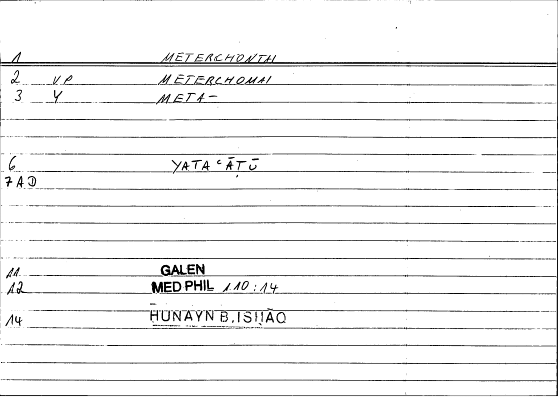 1 METERCHONTAI
2 VP METERCHOMAI
3 Y META-
6 YATAʿĀṬŪ
7 AD
11 GALEN
12 MED PHIL 110:14
14 ḤUNAYN B. ISḤĀQ